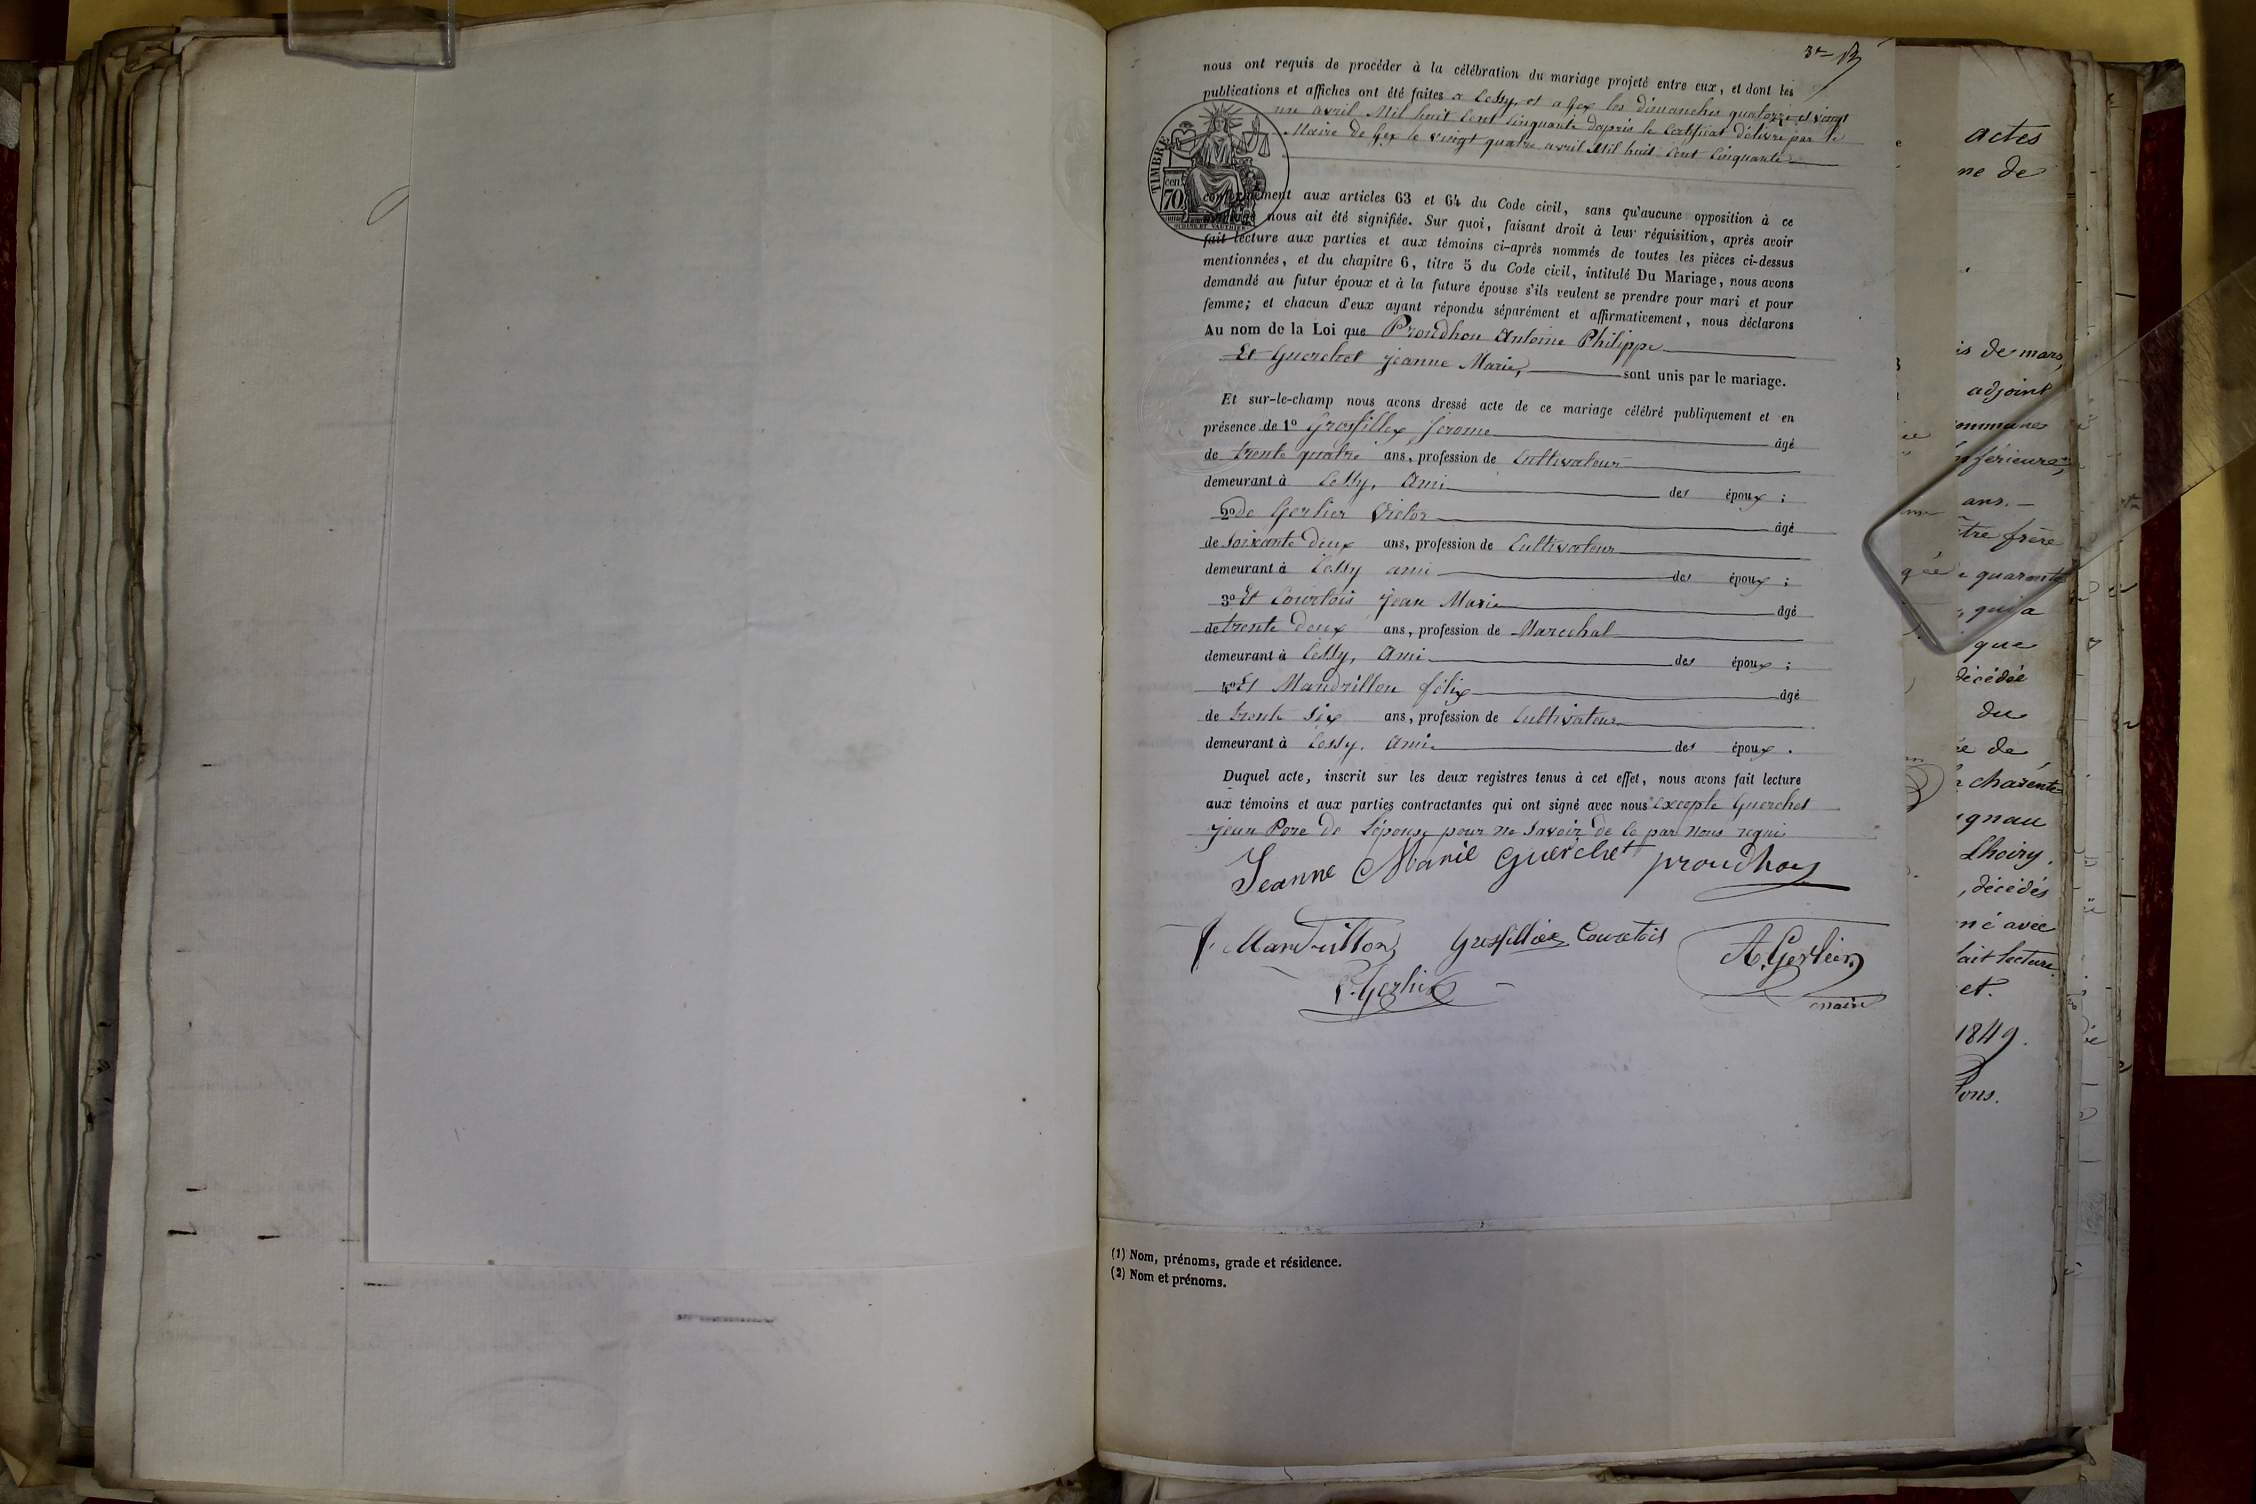 nous ont requis de procéder à la célébration du mariage projeté entre eux, et dont les
publications et affiches ont été faites a Cessy, et a Gex les dimanches quatorze et vingt
un avril Mil huit Cent Cinquante dapris le Certificat délivré par le
Maire de Gex le vingt quatre avril Mil huit Cent Cinquante
TIMBRE
cen
70
conformément aux articles 63 et 64 du Code civil, sans qu'aucune opposition à ce
mariage nous ait été signifiée. Sur quoi, faisant droit à leur réquisition, après avoir
fait lecture aux parties et aux témoins ci-après nommés de toutes les pièces ci-dessus
mentionnées, et du chapitre 6, titre 5 du Code civil, intitulé Du Mariage, nous avons
demandé au futur époux et à la future épouse s'ils veulent se prendre pour mari et pour
femme; et chacun d'eux ayant répondu séparément et affirmativement, nous déclarons
Au nom de la Loi que Proudhon Antoine Philippe
Et Guerchet jeanne Marie, sont unis par le mariage.
Et sur-le-champ nous avons dressé acte de ce mariage célébré publiquement et en
présence de 1° Grosfillex Jerome âgé
de trente quatre ans, profession de Cultivateur
demeurant à Cessy, Ami des époux ;
2° de Gerlier Victor âgé
de Soixante deux ans, profession de Cultivateur
demeurant à Cessy ami des époux ;
3° Et Courtois jean Marie âgé
de trente deux ans, profession de Marechal
demeurant à Cessy, Ami des époux ;
4° Et Mandrillon félix âgé
de trente six ans, profession de Cultivateur
demeurant à Cessy. Ami des époux .
Duquel acte, inscrit sur les deux registres tenus à cet effet, nous avons fait lecture
aux témoins et aux parties contractantes qui ont signé avec nous Excepte Guerchet
jean Pere de Lépouse pour ne Savoir de ce par Nous requi
Jeanne Marie Guerchet proudhon
f. Mandrillon Grosfillex Courtois A. Gerlier
V. Gerlier maire
(1) Nom, prénoms, grade et résidence.
(2) Nom et prénoms.
actes
ne de
is de mars,
adjoint
ommune
nférieure,
ans.
tre frère
quarante
qui a
que
décédée
du
re de
charente
gnau
Lhoiry.
, décédés
né avec
ait lecture
et.
1849.
ons.